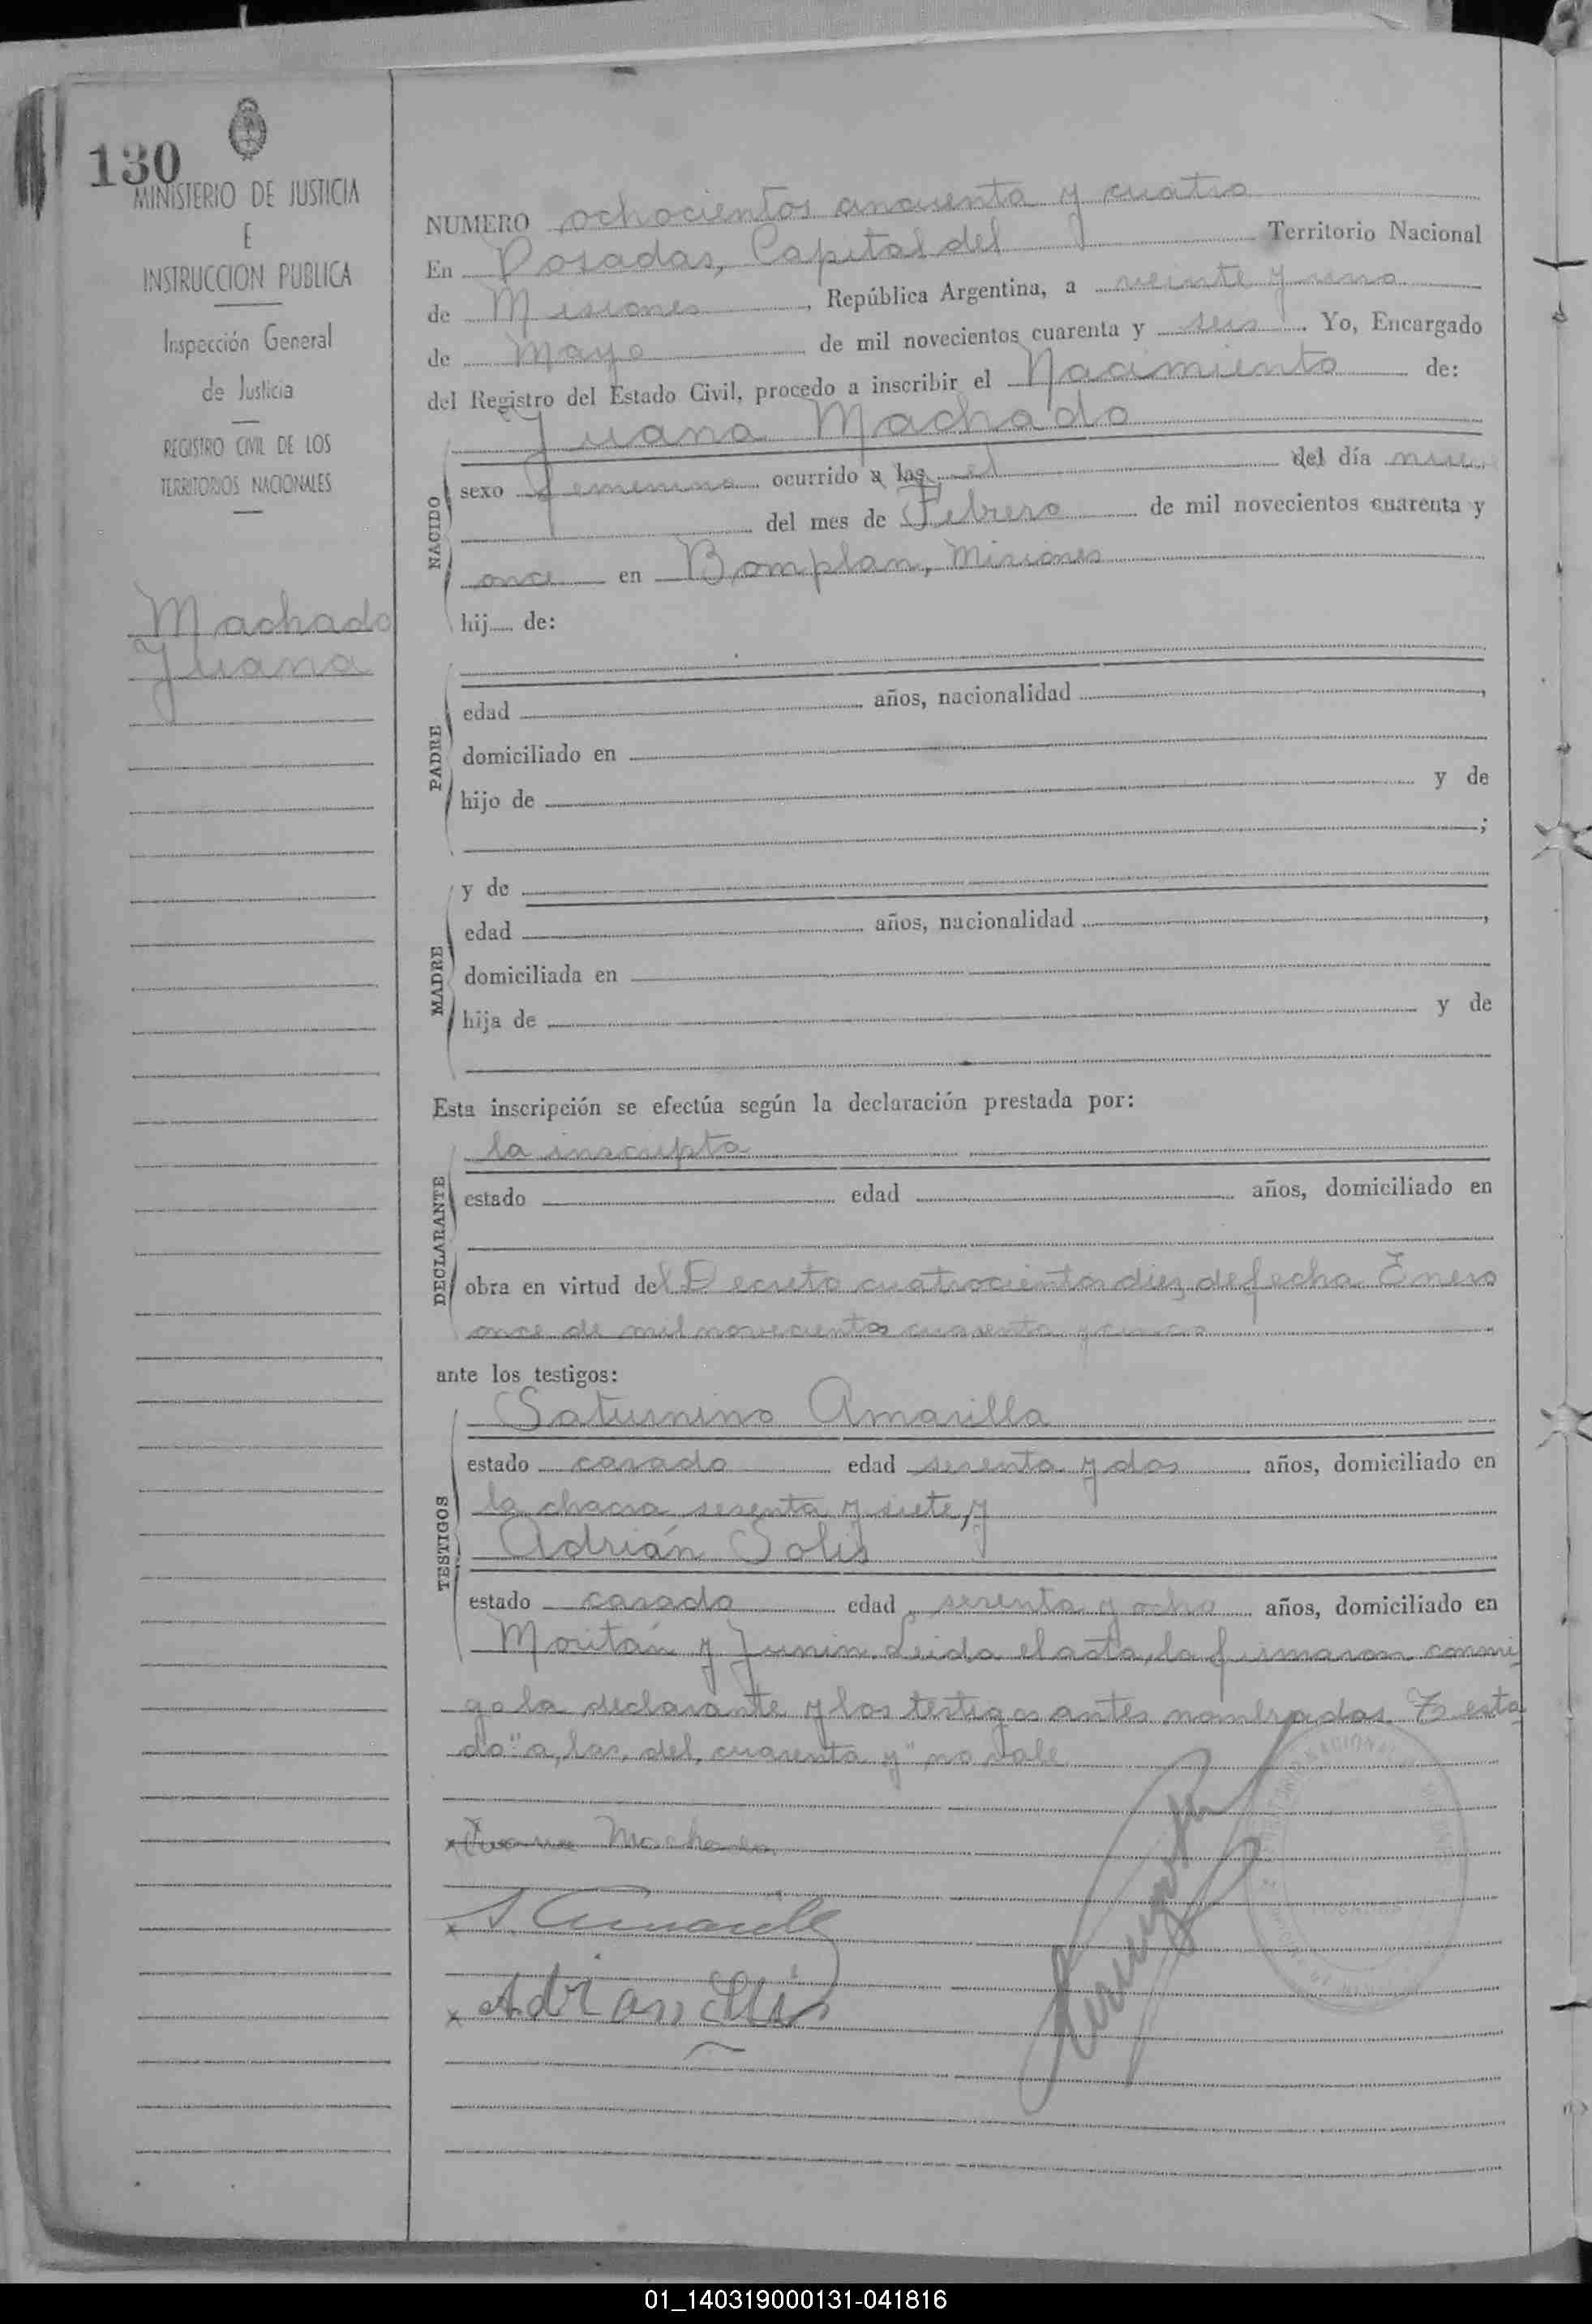 130
MINISTERIO DE JUSTICIA
E
INSTRUCCION PUBLICA
Inspección General
de Justicia
REGISTRO CIVIL DE LOS
TERRITORIOS NACIONALES
Machado
Juana
NUMERO ochocientos cincuenta y cuatro
En Posadas, Capital del Territorio Nacional
de Misiones, República Argentina, a veinte y uno
de Mayo de mil novecientos cuarenta y seis. Yo, Encargado
del Registro del Estado Civil, procedo a inscribir el Nacimiento de:
Juana Machado
NACIDO
sexo femenino ocurrido a las el del día nueve
del mes de Febrero de mil novecientos cuarenta y
once en Bomplan, Misiones
hij de:
PADRE
edad años, nacionalidad ,
domiciliado en
hijo de y de
;
MADRE
y de
edad años, nacionalidad ,
domiciliada en
hija de y de
Esta inscripción se efectúa según la declaración prestada por:
DECLARANTE
la inscripta
estado edad años, domiciliado en
obra en virtud del Decreto cuatrocientos diez de fecha Enero
once de mil novecientos cuarenta y cinco
ante los testigos:
TESTIGOS
Saturnino Amarilla
estado casado edad sesenta y dos años, domiciliado en
la chacra sesenta y siete, y
Adrián Solis
estado casado edad sesenta y ocho años, domiciliado en
Moritán y Junin. Leida el acta, la firmaron conmi
go la declarante y los testigos antes nombrados. Testa
do "a, las, del, cuarenta y" no vale
x Juana Machado
x S Amarilla
x Adrian Solis
01_140319000131-041816